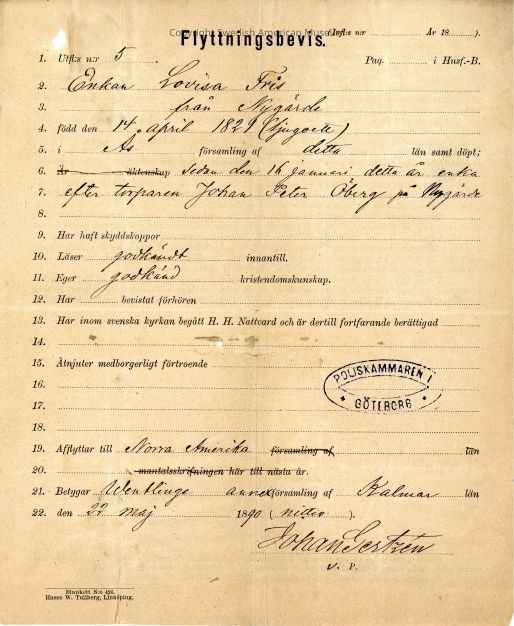 Copyright Swedish American Museum
(Infl: n:r År 18 ).
Flyttningsbevis.
1. Utfl: n:r 5 Pag. i Husf.-B.
2. Enkan Lovisa Fris
3. från Nygärde
4. född den 14 april 1829 (tjugoett)
5. i Ås församling af detta län samt döpt;
6. Är äktenskap sedan den 16 januari detta år enka
7. efter torparen Johan Peter Öberg på Nygärde
8.
9. Har haft skyddskoppor
10. Läser godkändt innantill.
11. Eger godkänd kristendomskunskap.
12. Har bevistat förhören
13. Har inom svenska kyrkan begått H. H. Nattvard och är dertill fortfarande berättigad
14.
15. Åtnjuter medborgerligt förtroende
16.
17.
18.
POLISKAMMAREN I GÖTEBORG
19. Afflyttar till Norra Amerika församling af län
20. mantalsskrifningen här till nästa år.
21. Betygar annexförsamling af Kalmar län
22. den 22 maj 1890 (nittio).
Johan
v. P.
Blankett N:o 426.
Hasse W. Tullberg, Linköping.